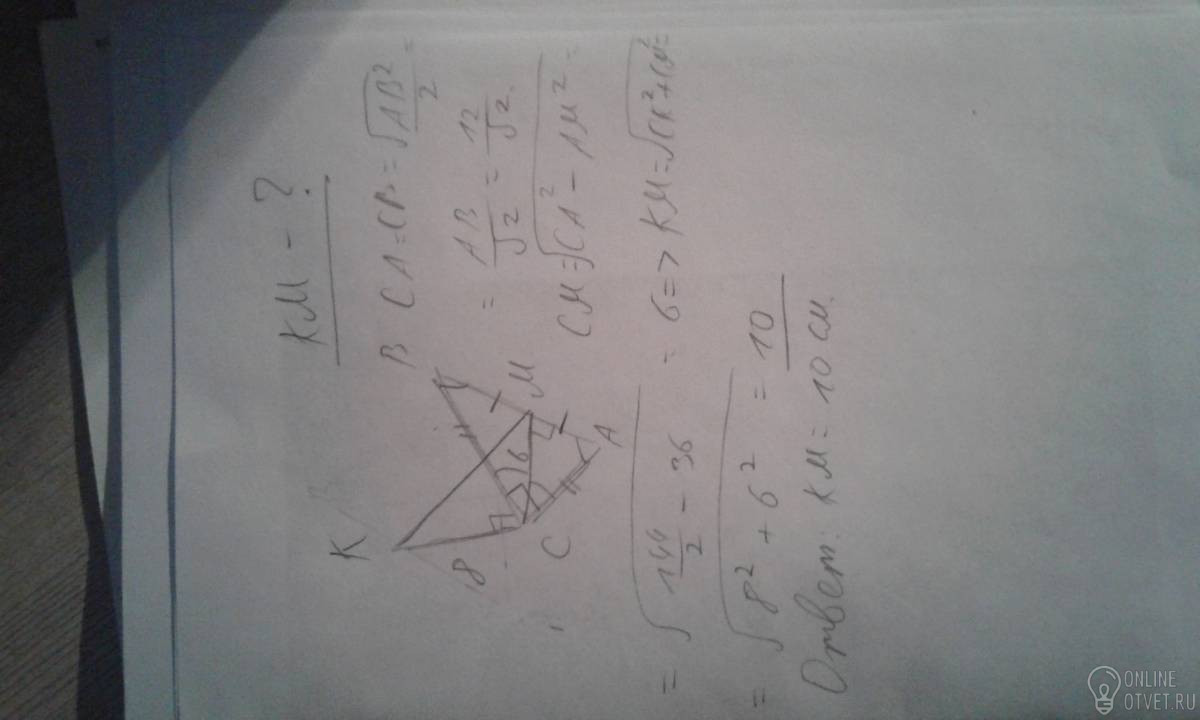 KM - ?
K
B
8
6
M
C
A
CA = CB = √(AB²/2) =
= AB/√2 = 12/√2.
CM = √(CA² - AM²) =
= √(144/2 - 36) = 6 => KM = √(CK² + CM²) =
= √(8² + 6²) = 10
Ответ: KM = 10 см.
ONLINE
OTVET.RU